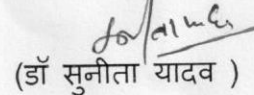 (डॉ सुनीता यादव )